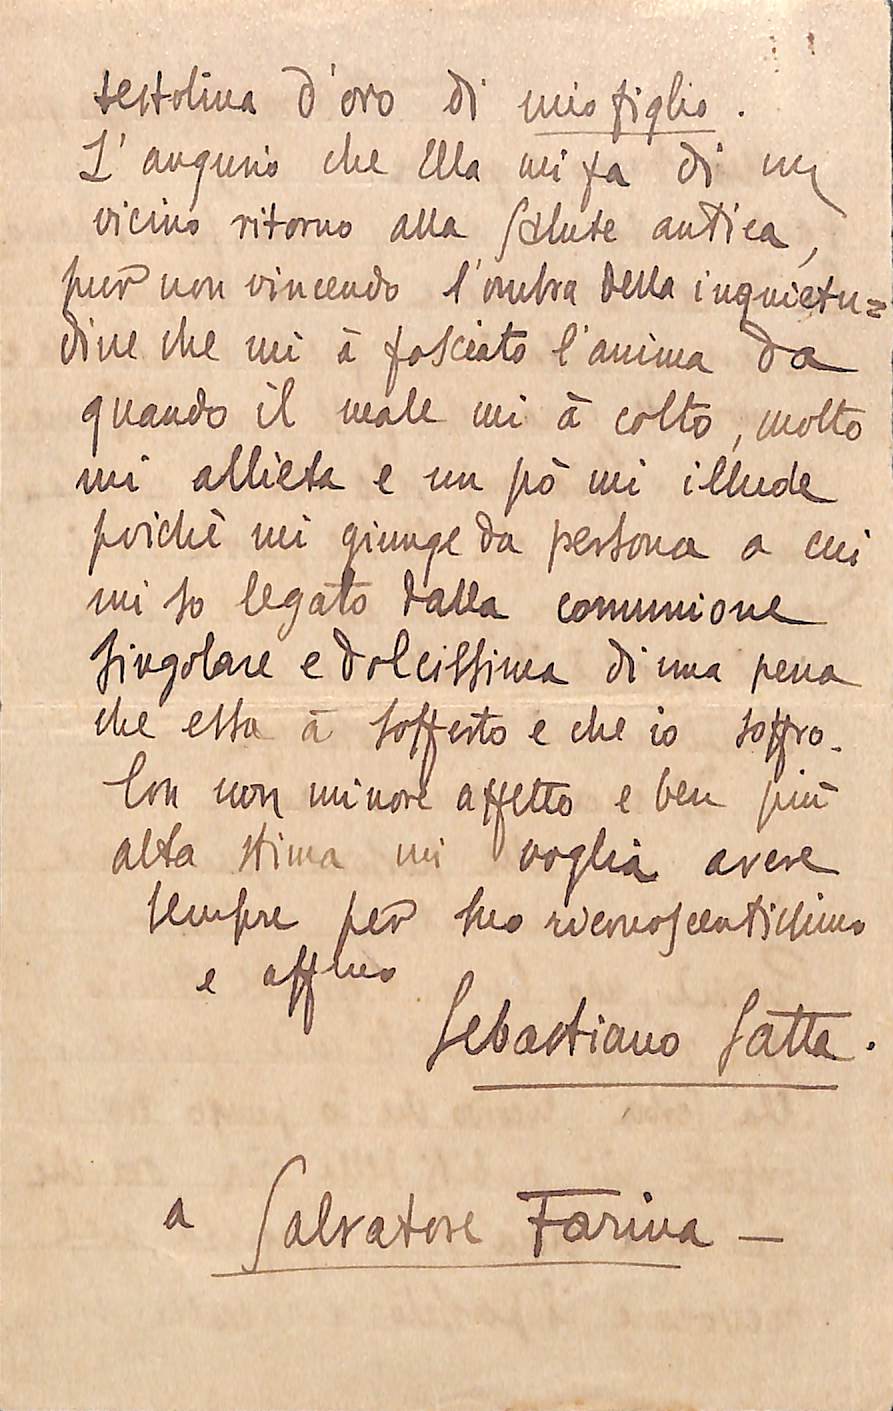 testolina d'oro di mio figlio.
L'augurio che Ella mi fa di un
vicino ritorno alla salute antica,
pur non vincendo l'ombra della inquietu=
dine che mi à fasciato l'anima da
quando il male mi à colto, molto
mi allieta e un pò mi illude
poichè mi giunge da persona a cui
mi so legato dalla comunione
singolare e dolcissima di una pena
che essa à sofferto e che io soffro.
Con non minore affetto e ben più
alta stima mi voglia avere
sempre per suo riconoscentissimo
e affmo
Sebastiano Satta.
a Salvatore Farina —